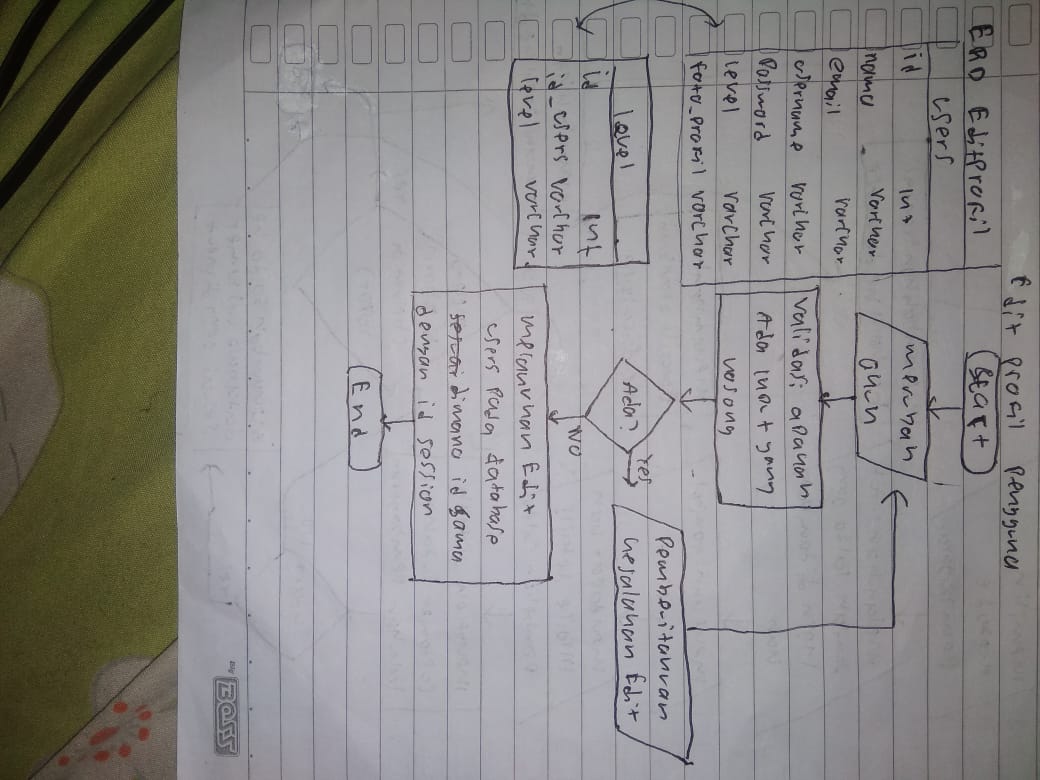 Edit profil pengguna
ERD Editprofil
users
id int
nama varchar
email varchar
username varchar
Password varchar
level varchar
foto_profil varchar
level
id int
id_users varchar
level varchar
Start
merubah
akun
Validasi apakah
Ada input yang
kosong
Ada?
Yes
Pemberitahuan
kesalahan Edit
NO
melakukan Edit
users pada database
sesuai dimana id sama
dengan id session
End
Big BOSS